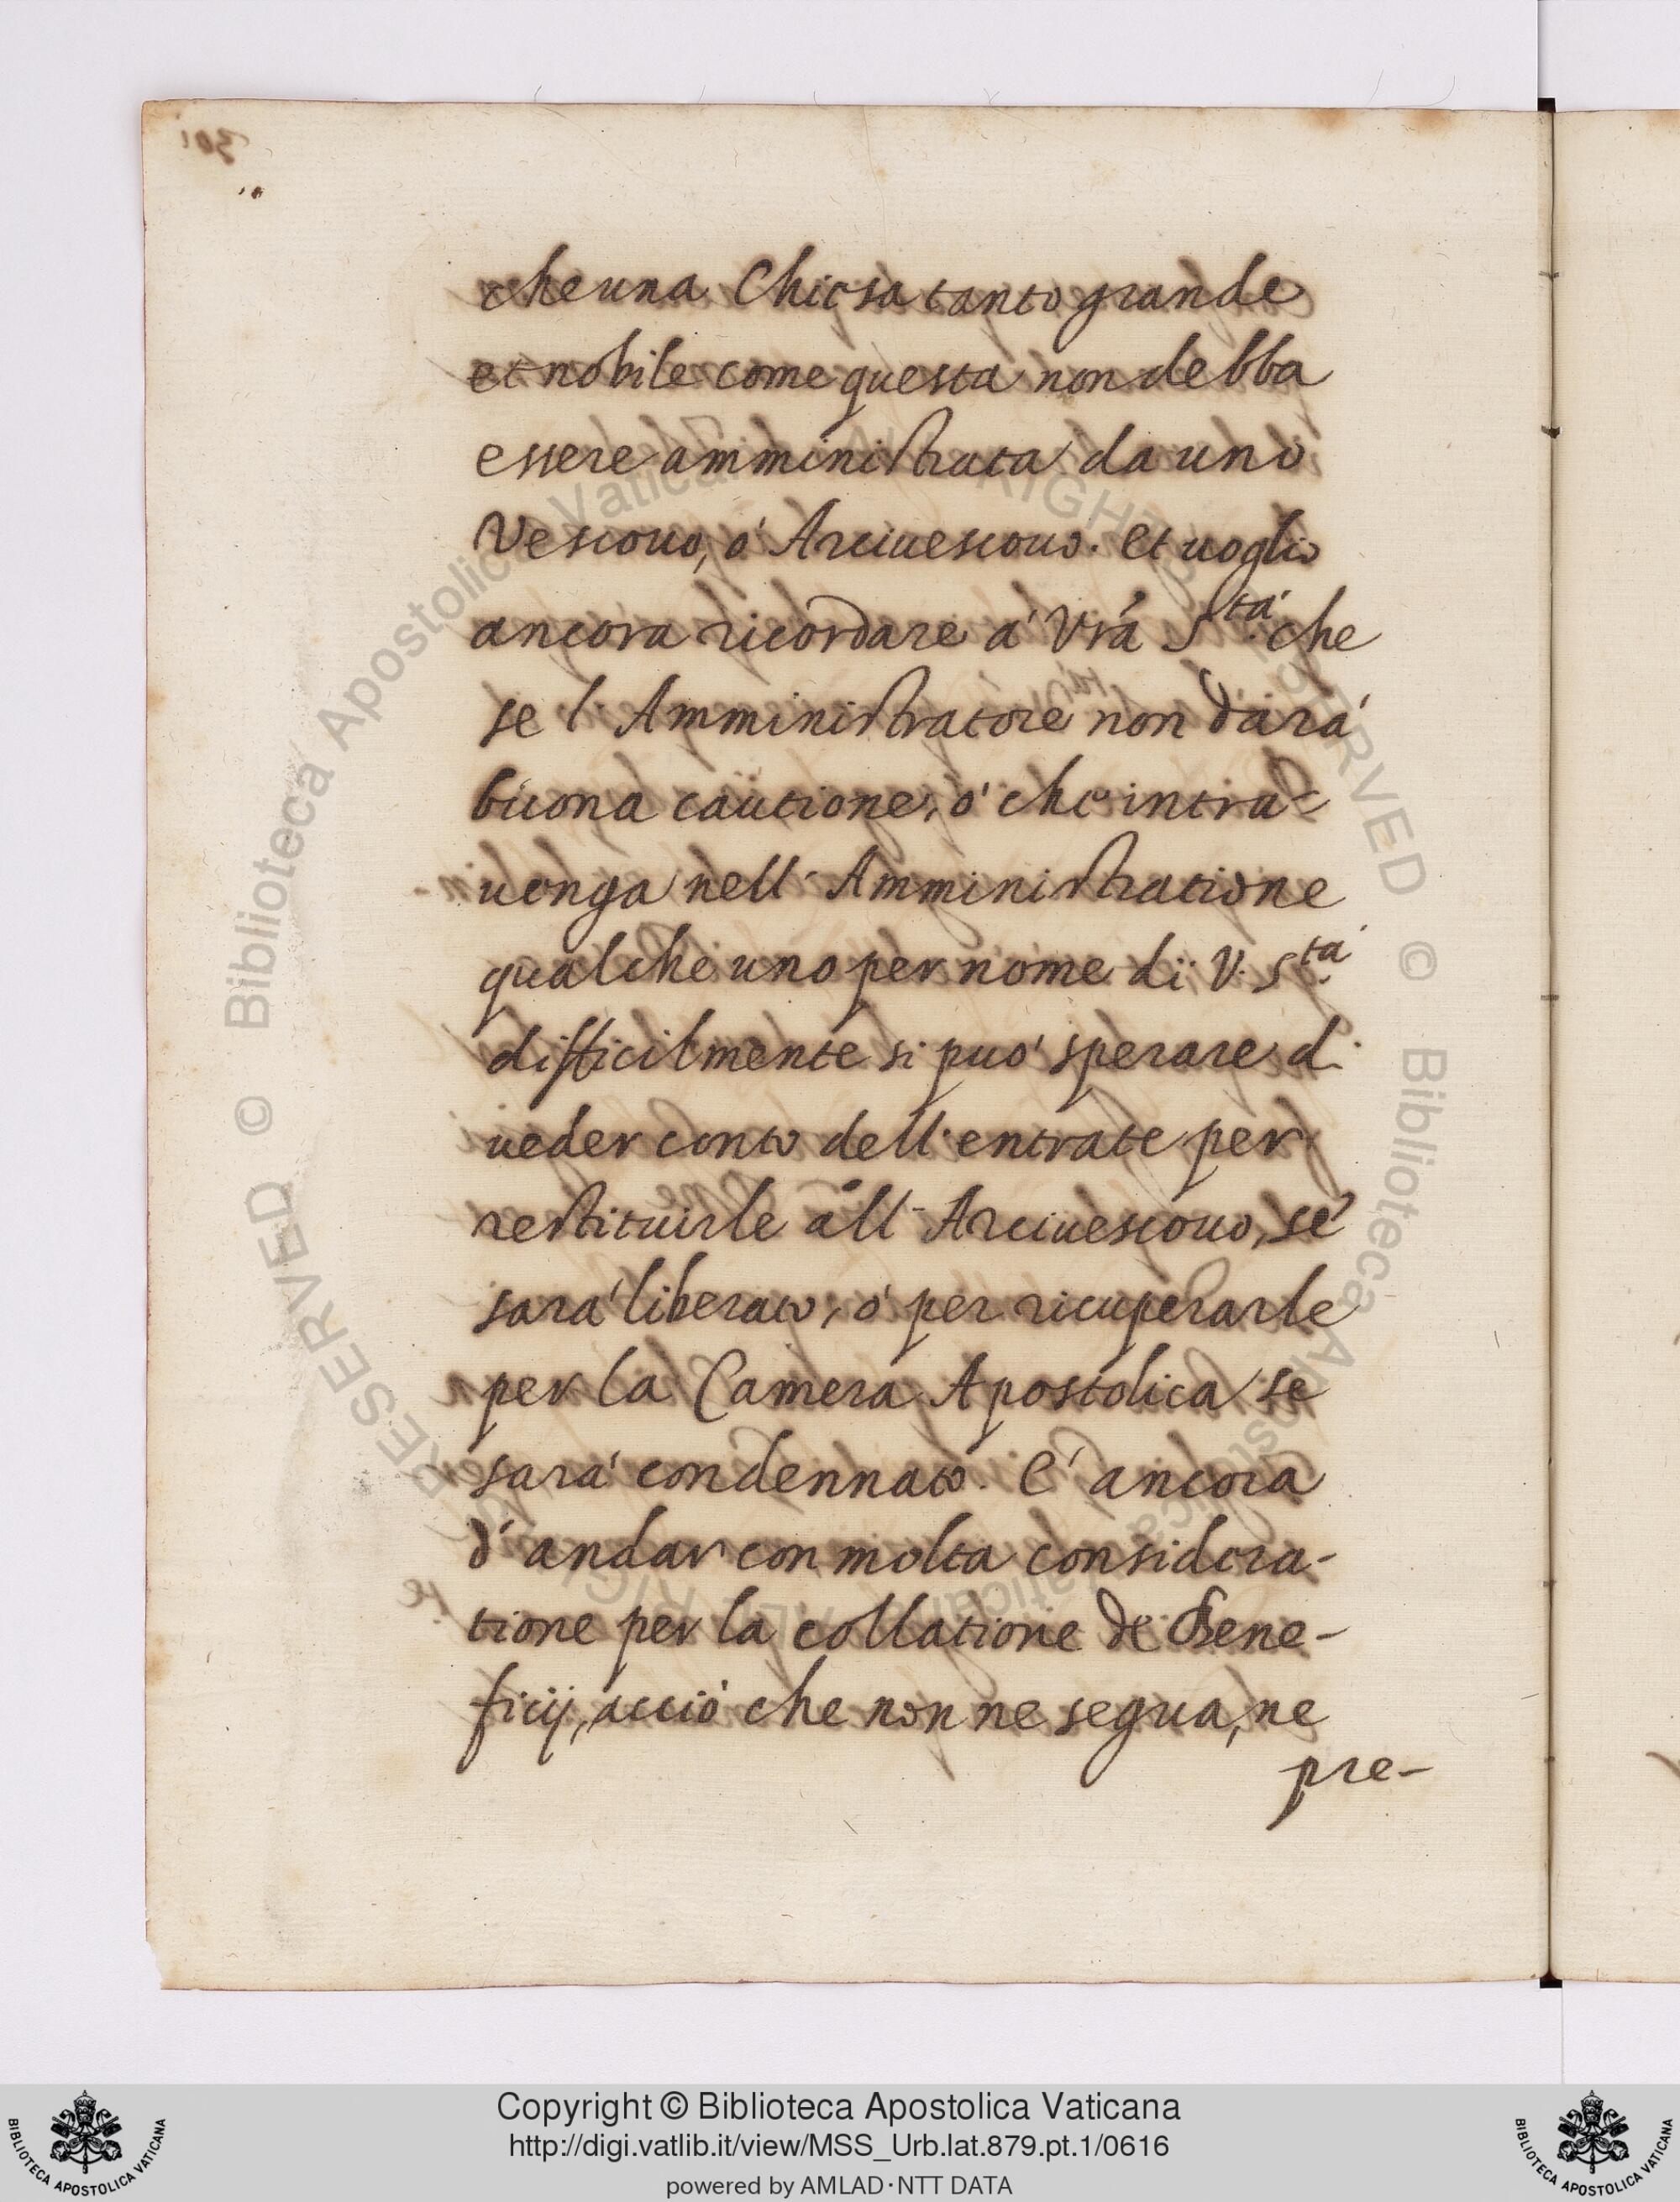 che una Chiesa tanto grande
et nobile come questa non debba
essere amministrata da uno
Vescouo, ó Arciuescouo. et uoglio
ancora ricordare á Vrá S.tá che
se l'Amministratore non dará
buona cautione, ó che intra-
uenga nell'Amministratione
qualche uno per nome di V. S.tá
difficilmente si puó sperare di
ueder conto dell'entrate per
restituirle all'Arciuescouo, se
sará liberato, ó per ricuperarle
per la Camera Apostolica se
sará condennato. É ancora
d'andar con molta considera-
tione per la collatione de Bene-
ficij, acció che non ne segua, ne
pre-
Copyright © Biblioteca Apostolica Vaticana
http://digi.vatlib.it/view/MSS_Urb.lat.879.pt.1/0616
powered by AMLAD·NTT DATA
BIBLIOTECA APOSTOLICA VATICANA
BIBLIOTECA APOSTOLICA VATICANA